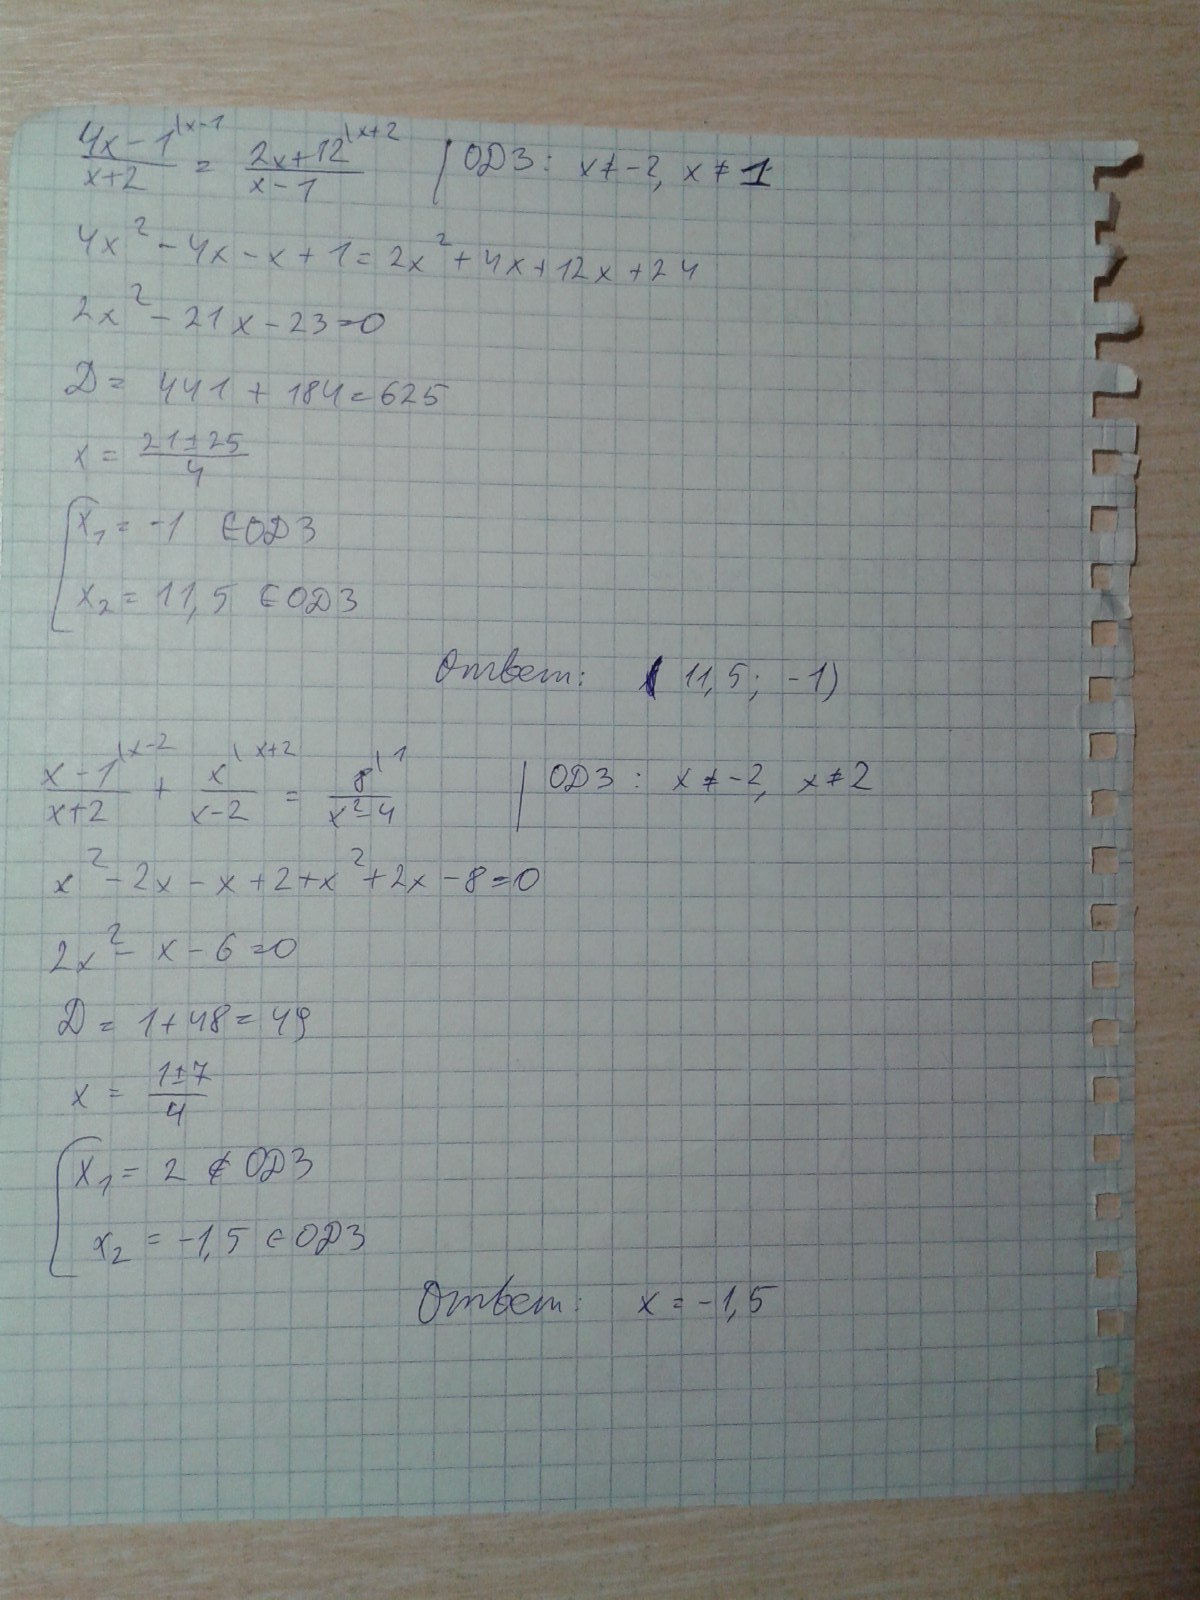 (4x-1)/(x+2) \x-1 = (2x+12)/(x-1) \x+2 | ОДЗ: x≠-2, x≠1
4x² - 4x - x + 1 = 2x² + 4x + 12x + 24
2x² - 21x - 23 = 0
D = 441 + 184 = 625
x = (21±25)/4
[x₁ = -1 ∈ ОДЗ
x₂ = 11,5 ∈ ОДЗ
Ответ: (11,5; -1)
(x-1)/(x+2) \x-2 + x/(x-2) \x+2 = 8/(x²-4) \1 | ОДЗ: x≠-2, x≠2
x² - 2x - x + 2 + x² + 2x - 8 = 0
2x² - x - 6 = 0
D = 1 + 48 = 49
x = (1±7)/4
[x₁ = 2 ∉ ОДЗ
x₂ = -1,5 ∈ ОДЗ
Ответ: x = -1,5